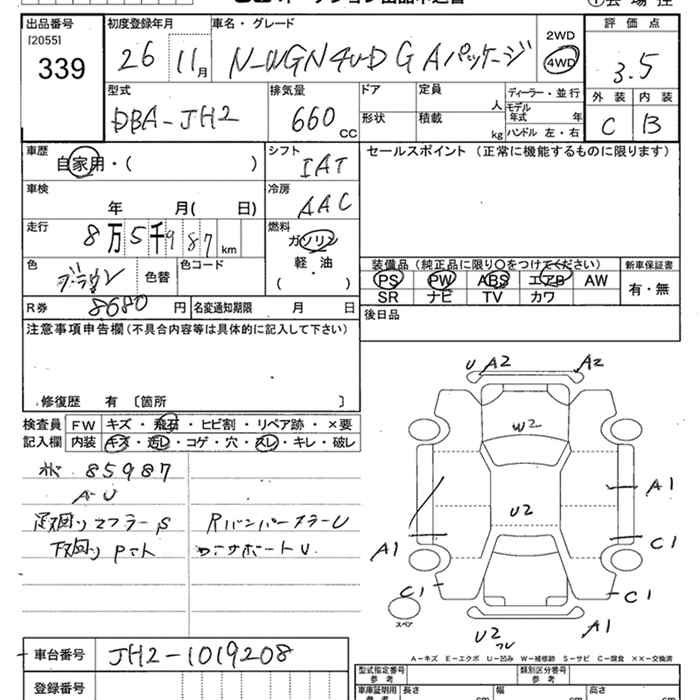 出品番号
[2055]
339
初度登録年月
26 11月
車名・グレード
N-WGN 4WD G Aパッケージ
2WD
4WD
評価点
3.5
外装 内装
C B
型式
DBA-JH2
排気量
660 CC
ドア
形状
定員 人
積載 kg
ディーラー・並行
モデル年式 年
ハンドル 左・右
車歴
自家用・( )
シフト
IAT
セールスポイント (正常に機能するものに限ります)
車検
年 月( 日)
冷房
AAC
走行
8万5千987 km
燃料
ガソリン
軽・油
( )
色
ブラウン
色替
色コード
R券 8680円
名変通知期限 月 日
装備品 (純正品に限り○をつけてください)
新車保証書
PS PW ABS エアB AW
有・無
SR ナビ TV カワ
後日品
注意事項申告欄 (不具合内容等は具体的に記入して下さい)
修復歴 有 〔箇所 〕
検査員記入欄
FW キズ・飛石・ヒビ割・リペア跡・×要
内装 キズ・汚レ・コゲ・穴・スレ・キレ・破レ
85987
A・U
足回りマフラーS
下回りPマト
RバンパーカラーU
コアサポートU
U A2 A2
W2
U2
A1
A1
C1
C1
C1
A1
U2
スペア
A-キズ E-エクボ U-凹み W-補修跡 S-サビ C-腐食 ××-交換済
車台番号
JH2-1019208
登録番号
型式指定番号
類別区分番号
参考
車庫証明用
参考
長さ cm
幅 cm
高さ cm